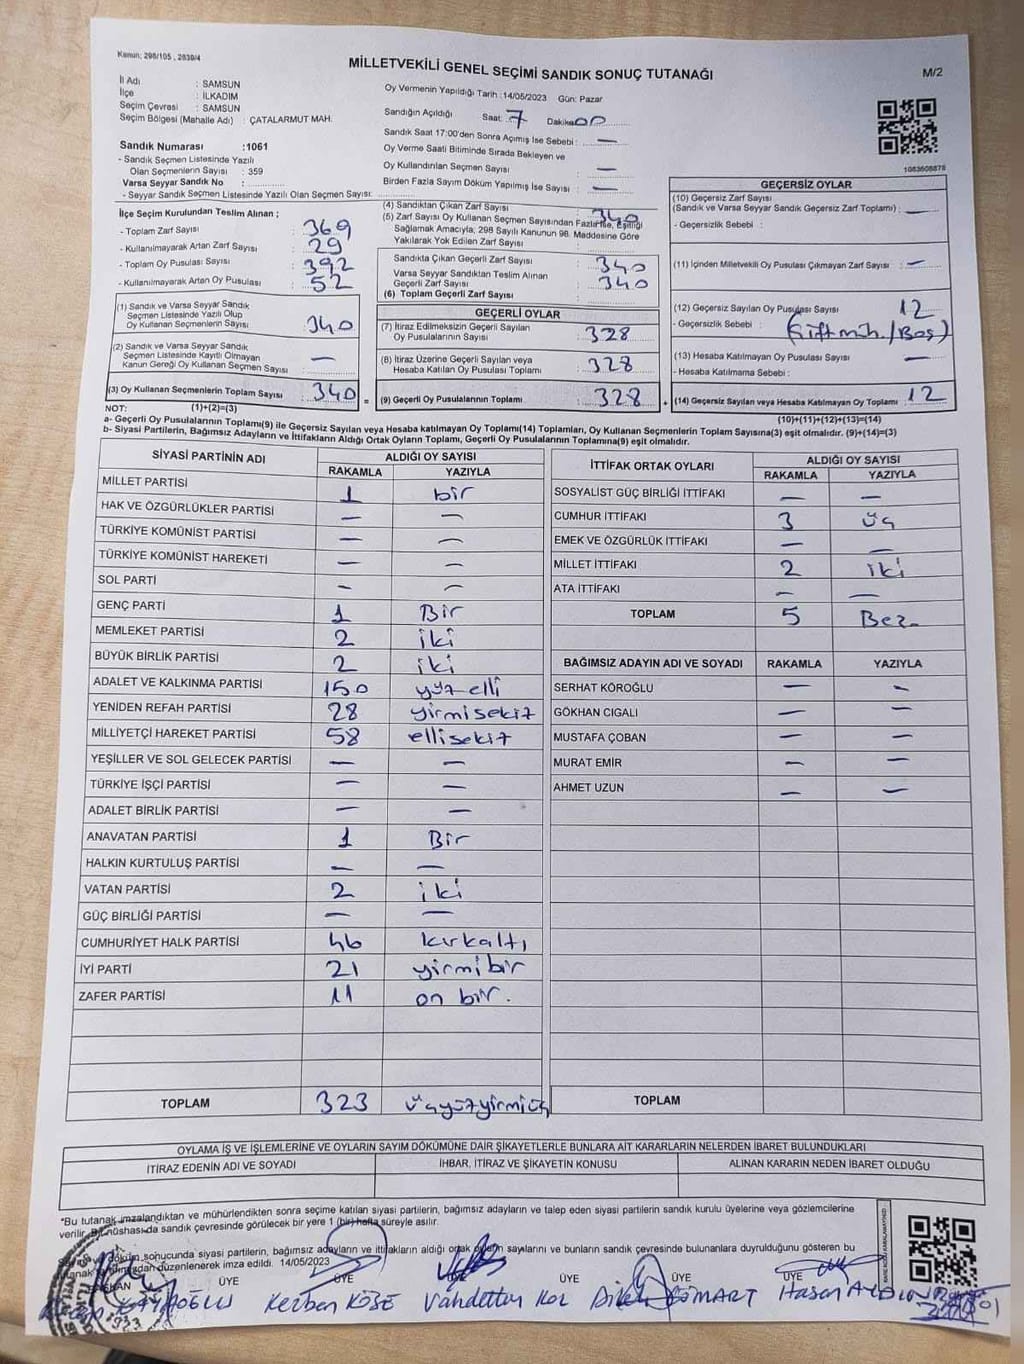 Kanun: 298/105 , 2839/4
MİLLETVEKİLİ GENEL SEÇİMİ SANDIK SONUÇ TUTANAĞI
M/2
İl Adı : SAMSUN
İlçe : İLKADIM
Seçim Çevresi : SAMSUN
Seçim Bölgesi (Mahalle Adı) : ÇATALARMUT MAH.
Sandık Numarası :1061
- Sandık Seçmen Listesinde Yazılı
Olan Seçmenlerin Sayısı : 359
Varsa Seyyar Sandık No :
- Seyyar Sandık Seçmen Listesinde Yazılı Olan Seçmen Sayısı:
Oy Vermenin Yapıldığı Tarih :14/05/2023 Gün: Pazar
Sandığın Açıldığı Saat: 7 Dakika 00
Sandık Saat 17:00'den Sonra Açımış İse Sebebi : —
Oy Verme Saati Bitiminde Sırada Bekleyen ve
Oy Kullandırılan Seçmen Sayısı : —
Birden Fazla Sayım Döküm Yapılmış İse Sayısı : —
1083608878
İlçe Seçim Kurulundan Teslim Alınan ;
- Toplam Zarf Sayısı : 369
- Kullanılmayarak Artan Zarf Sayısı : 29
- Toplam Oy Pusulası Sayısı : 392
- Kullanılmayarak Artan Oy Pusulası : 52
(1) Sandık ve Varsa Seyyar Sandık
Seçmen Listesinde Yazılı Olup
Oy Kullanan Seçmenlerin Sayısı : 340
(2) Sandık ve Varsa Seyyar Sandık
Seçmen Listesinde Kayıtlı Olmayan
Kanun Gereği Oy Kullanan Seçmen Sayısı : —
(3) Oy Kullanan Seçmenlerin Toplam Sayısı : 340 =
(4) Sandıktan Çıkan Zarf Sayısı : 340
(5) Zarf Sayısı Oy Kullanan Seçmen Sayısından Fazla İse, Eşitliği
Sağlamak Amacıyla, 298 Sayılı Kanunun 98. Maddesine Göre
Yakılarak Yok Edilen Zarf Sayısı :
Sandıkta Çıkan Geçerli Zarf Sayısı : 340
Varsa Seyyar Sandıktan Teslim Alınan
Geçerli Zarf Sayısı : 340
(6) Toplam Geçerli Zarf Sayısı :
GEÇERLİ OYLAR
(7) İtiraz Edilmeksizin Geçerli Sayılan
Oy Pusulalarının Sayısı : 328
(8) İtiraz Üzerine Geçerli Sayılan veya
Hesaba Katılan Oy Pusulası Toplamı : 328
(9) Geçerli Oy Pusulalarının Toplamı : 328 +
GEÇERSİZ OYLAR
(10) Geçersiz Zarf Sayısı
(Sandık ve Varsa Seyyar Sandık Geçersiz Zarf Toplamı) : —
- Geçersizlik Sebebi :
(11) İçinden Milletvekili Oy Pusulası Çıkmayan Zarf Sayısı : —
(12) Geçersiz Sayılan Oy Pusulası Sayısı : 12
- Geçersizlik Sebebi : (Çift müh./Boş)
(13) Hesaba Katılmayan Oy Pusulası Sayısı : —
- Hesaba Katılmama Sebebi :
(14) Geçersiz Sayılan veya Hesaba Katılmayan Oy Toplamı : 12
NOT: (1)+(2)=(3)
(10)+(11)+(12)+(13)=(14)
a- Geçerli Oy Pusulalarının Toplamı(9) ile Geçersiz Sayılan veya Hesaba katılmayan Oy Toplamı(14) Toplamları, Oy Kullanan Seçmenlerin Toplam Sayısına(3) eşit olmalıdır. (9)+(14)=(3)
b- Siyasi Partilerin, Bağımsız Adayların ve İttifakların Aldığı Ortak Oyların Toplamı, Geçerli Oy Pusulalarının Toplamına(9) eşit olmalıdır.
SİYASİ PARTİNİN ADI ALDIĞI OY SAYISI
RAKAMLA YAZIYLA
MİLLET PARTİSİ 1 bir
HAK VE ÖZGÜRLÜKLER PARTİSİ — —
TÜRKİYE KOMÜNİST PARTİSİ — —
TÜRKİYE KOMÜNİST HAREKETİ — —
SOL PARTİ — —
GENÇ PARTİ 1 Bir
MEMLEKET PARTİSİ 2 iki
BÜYÜK BİRLİK PARTİSİ 2 iki
ADALET VE KALKINMA PARTİSİ 150 yüz elli
YENİDEN REFAH PARTİSİ 28 yirmisekiz
MİLLİYETÇİ HAREKET PARTİSİ 58 ellisekiz
YEŞİLLER VE SOL GELECEK PARTİSİ — —
TÜRKİYE İŞÇİ PARTİSİ — —
ADALET BİRLİK PARTİSİ — —
ANAVATAN PARTİSİ 1 Bir
HALKIN KURTULUŞ PARTİSİ — —
VATAN PARTİSİ 2 iki
GÜÇ BİRLİĞİ PARTİSİ — —
CUMHURİYET HALK PARTİSİ 46 kırkaltı
İYİ PARTİ 21 yirmibir
ZAFER PARTİSİ 11 on bir.
TOPLAM 323 üçyüzyirmiüç
İTTİFAK ORTAK OYLARI ALDIĞI OY SAYISI
RAKAMLA YAZIYLA
SOSYALİST GÜÇ BİRLİĞİ İTTİFAKI — —
CUMHUR İTTİFAKI 3 üç
EMEK VE ÖZGÜRLÜK İTTİFAKI — —
MİLLET İTTİFAKI 2 iki
ATA İTTİFAKI — —
TOPLAM 5 Beş
BAĞIMSIZ ADAYIN ADI VE SOYADI RAKAMLA YAZIYLA
SERHAT KÖROĞLU — —
GÖKHAN CIGALI — —
MUSTAFA ÇOBAN — —
MURAT EMİR — —
AHMET UZUN — —
TOPLAM
OYLAMA İŞ VE İŞLEMLERİNE VE OYLARIN SAYIM DÖKÜMÜNE DAİR ŞİKAYETLERLE BUNLARA AİT KARARLARIN NELERDEN İBARET BULUNDUKLARI
İTİRAZ EDENİN ADI VE SOYADI İHBAR, İTİRAZ VE ŞİKAYETİN KONUSU ALINAN KARARIN NEDEN İBARET OLDUĞU
*Bu tutanak imzalandıktan ve mühürlendikten sonra seçime katılan siyasi partilerin, bağımsız adayların ve talep eden siyasi partilerin sandık kurulu üyelerine veya gözlemcilerine
verilir. Bir nüshası da sandık çevresinde görülecek bir yere 1 (bir) hafta süreyle asılır.
döküm sonucunda siyasi partilerin, bağımsız adayların ve ittifakların aldığı ortak oyların sayılarını ve bunların sandık çevresinde bulunanlara duyrulduğunu gösteren bu
tutanak tarafımızdan düzenlenerek imza edildi. 14/05/2023
BAŞKAN ÜYE ÜYE ÜYE ÜYE ÜYE
Kerban KÖSE Vahdettin Kol CÖMART Hasan